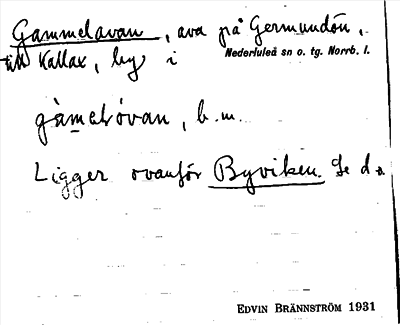 Gammelavan, ava på Germundön,
till Kallax, by i Nederluleå sn o. tg. Norrb. l.
gàmelòvan, b.m.
Ligger ovanför Byviken. Se d.o.
EDVIN BRÄNNSTRÖM 1931